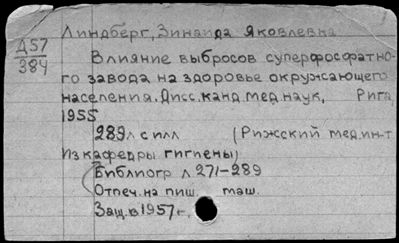 Линдберг, Зинаида Яковлевна
Д57
384
Влияние выбросов суперфосфатно-
го завода на здоровье окружающего
населения. Дисс. канд. мед. наук, Рига,
1955
289 л. с илл (Рижский мед. ин-т
Из кафедры гигиены)
Библиогр л. 271-289
Отпеч. на пиш. маш.
Защ. в 1957 г.